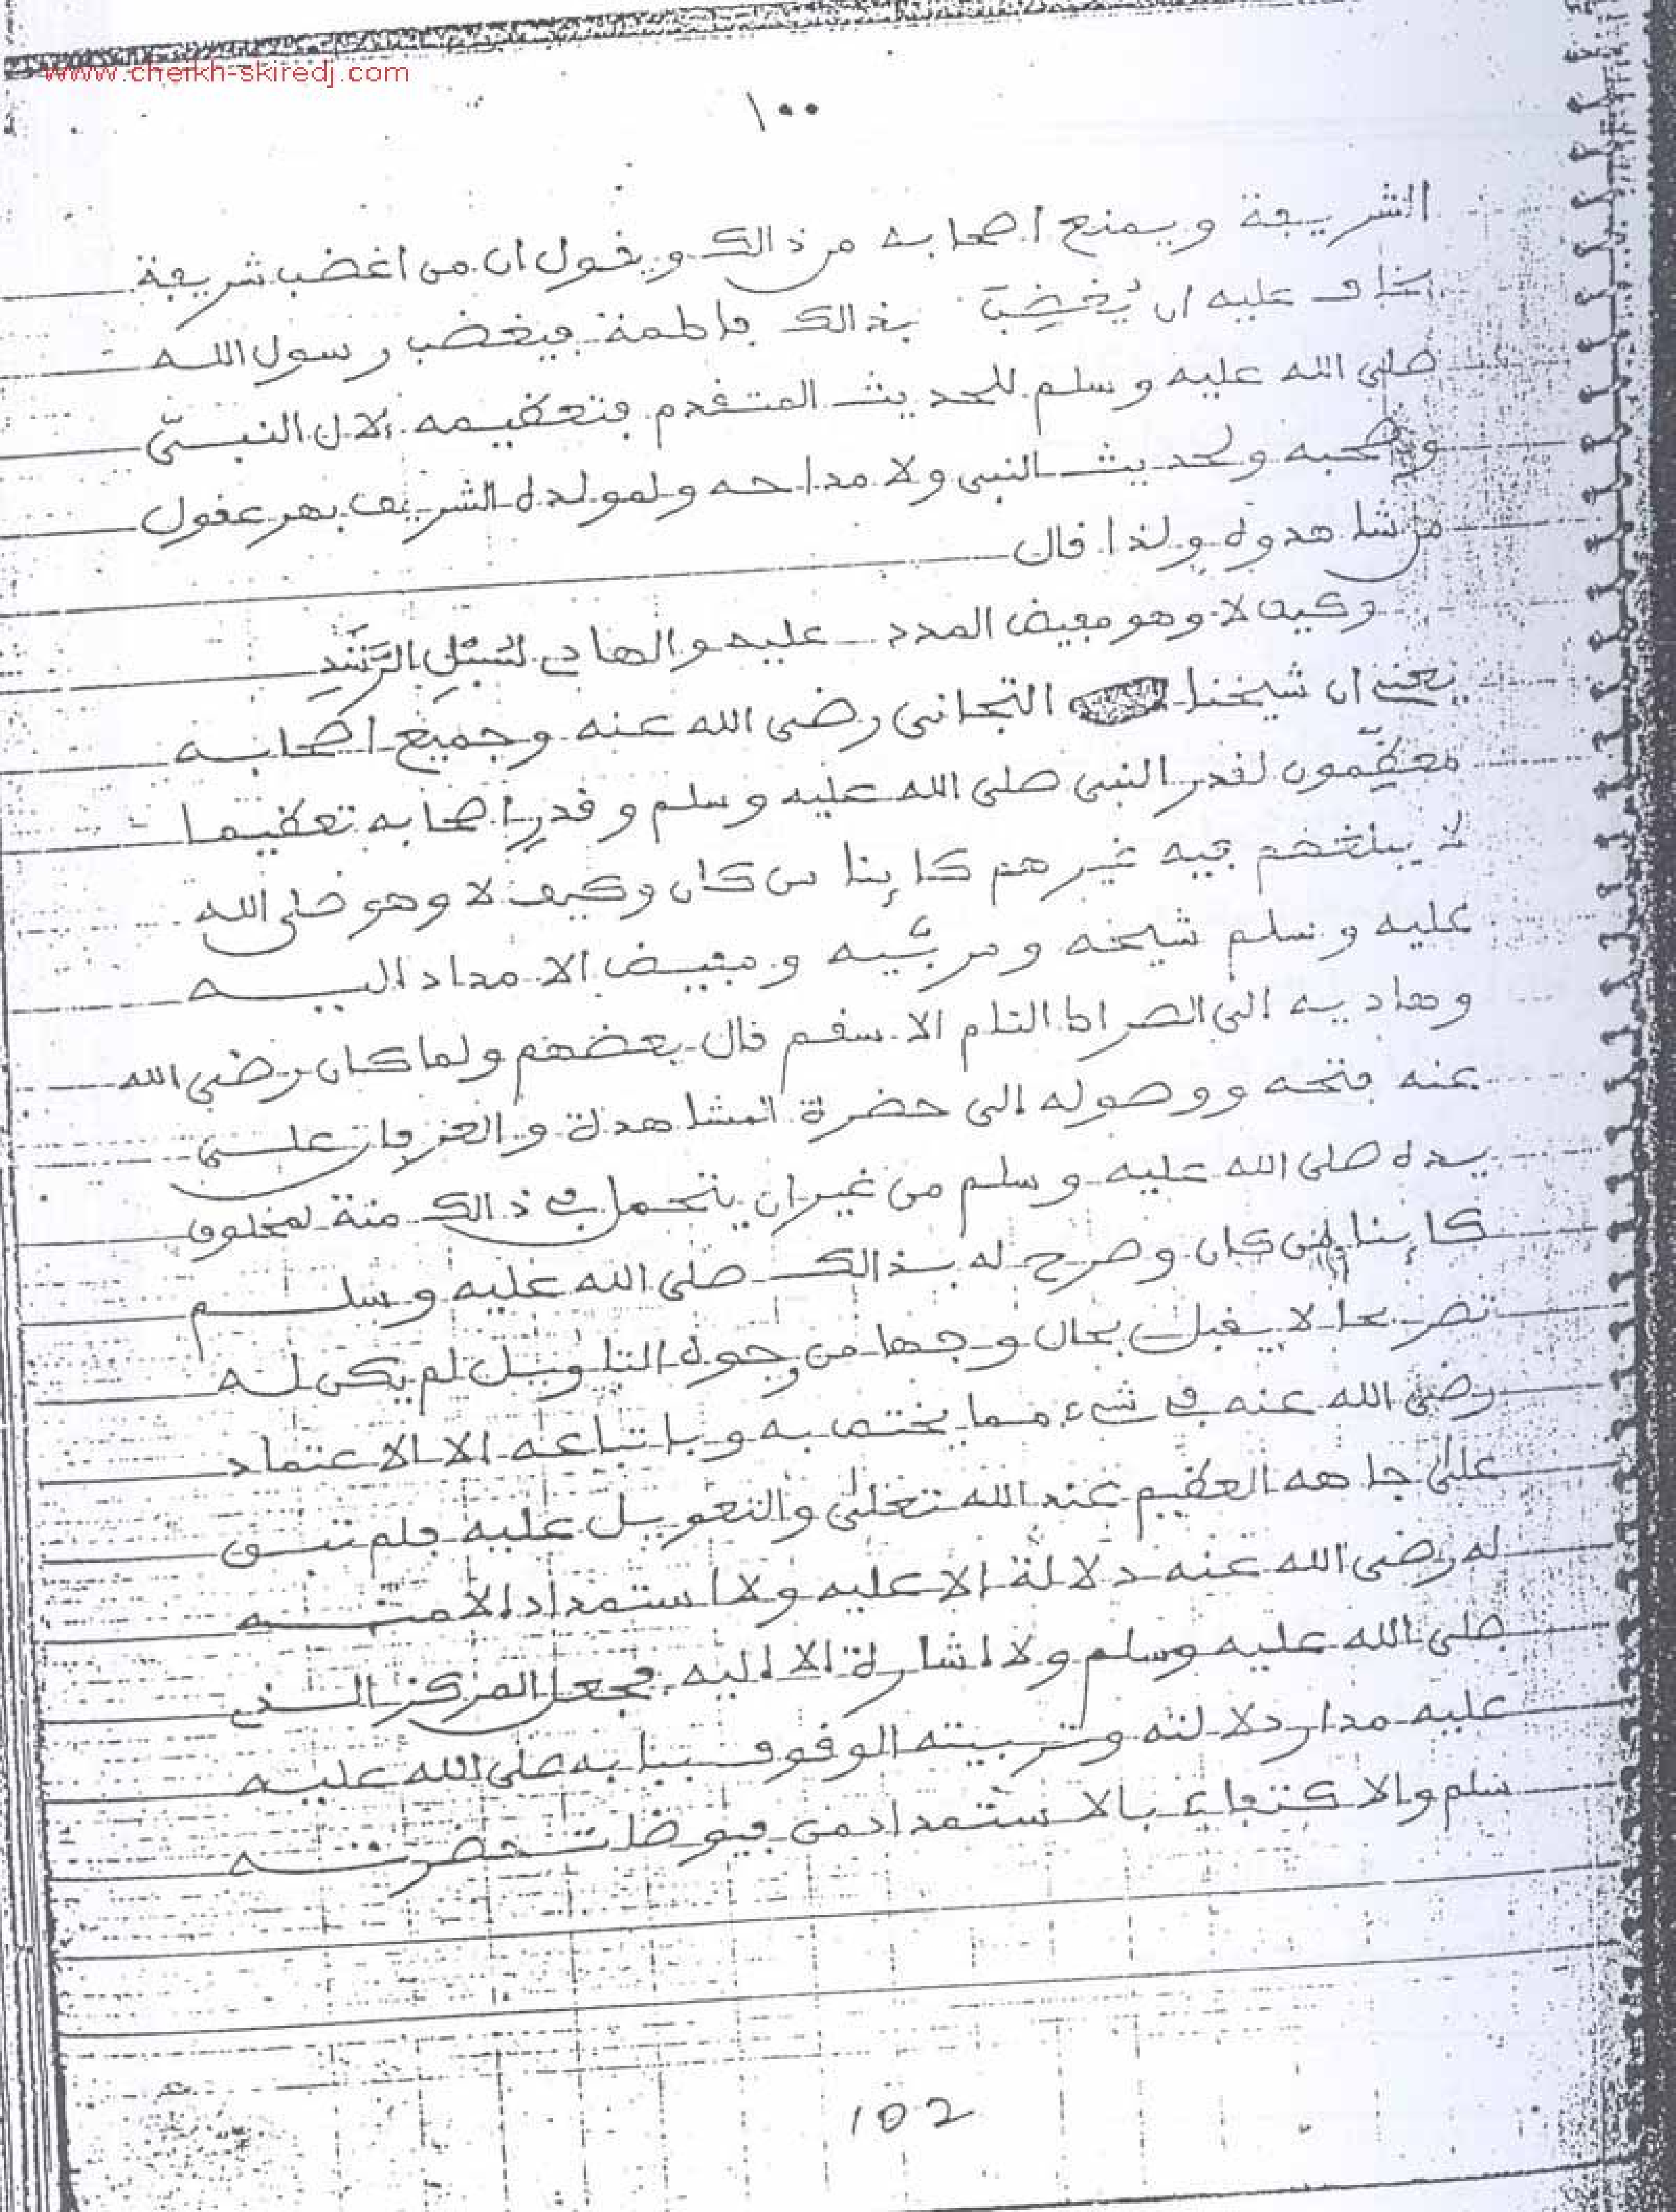 www.cheikh-skiredj.com
١٠٠
الشريفة ويمنع اصحابه من ذالك ويقول ان من اغضب شريفة
يخاف عليه ان يُغضِبَ بذالك فاطمة فيغضب رسول الله
صلى الله عليه وسلم للحديث المتقدم فتعظيمه لآل النبيّ
وصحبه ولحديث النبي ولأمداحه ولمولده الشريف بهر عقول
من شاهدوه ولذا قال
وكيف لا وهو مفيض المدد عليه والهادي لسُبُلِ الرَّشَدِ
يعني ان شيخنا التجاني رضي الله عنه وجميع اصحابه
معظِّمون لقدر النبي صلى الله عليه وسلم وقدر اصحابه تعظيما
لا يبلغهم فيه غيرهم كائنا من كان وكيف لا وهو صلى الله
عليه وسلم شيخه ومربّيه ومفيض الامداد اليه
وهاديه الى الصراط التام الاسقم قال بعضهم ولما كان رضي الله
عنه فتحه ووصوله الى حضرة المشاهدة والعرفان على
يده صلى الله عليه وسلم من غير ان يتحمل في ذالك منة لمخلوق
كائنا من كان وصرح له بذالك صلى الله عليه وسلم
تصريحا لا يقبل بحال وجها من وجوه التاويل لم يكن له
رضي الله عنه في شيء مما يختص به وباتباعه الا الاعتماد
على جاهه العظيم عند الله تعلى والتعويل عليه فلم تبق
له رضي الله عنه دلالة الا عليه ولا استمداد الا منه
صلى الله عليه وسلم ولا اشارة الا اليه فجعل المركز الذي
عليه مدار دلالته وتربيته الوقوف ببابه صلى الله عليه
سلم والاكتفاء بالاستمداد من فيوضات حضرته
102